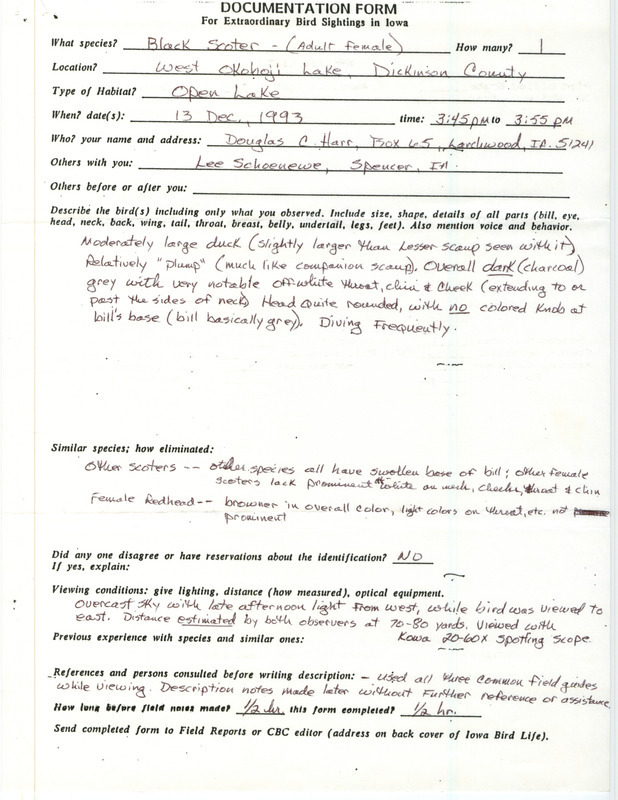 DOCUMENTATION FORM
For Extraordinary Bird Sightings in Iowa
What species? Black Scoter - (Adult female) How many? 1
Location? West Okoboji Lake, Dickinson County
Type of Habitat? Open Lake
When? date(s): 13 Dec., 1993 time: 3:45 pm to 3:55 pm
Who? your name and address: Douglas C. Harr, Box 65, Larchwood, IA. 51241
Others with you: Lee Schoenewe, Spencer, IA.
Others before or after you:
Describe the bird(s) including only what you observed. Include size, shape, details of all parts (bill, eye,
head, neck, back, wing, tail, throat, breast, belly, undertail, legs, feet). Also mention voice and behavior.
Moderately large duck (slightly larger than Lesser scaup seen with it)
Relatively "plump" (much like companion scaup). Overall dark (charcoal)
grey with very notable off-white throat, chin & cheek (extending to or
past the sides of neck) Head quite rounded, with no colored knob at
bill's base (bill basically grey). Diving frequently.
Similar species; how eliminated:
Other scoters -- other species all have swollen base of bill; other female
scoters lack prominent white on neck, cheeks, throat & chin
Female Redhead -- browner in overall color, light colors on throat, etc. not
prominent
Did any one disagree or have reservations about the identification? NO
If yes, explain:
Viewing conditions: give lighting, distance (how measured), optical equipment.
Overcast sky with late afternoon light from west, while bird was viewed to
east. Distance estimated by both observers at 70-80 yards. Viewed with
Kowa 20-60x spotting scope.
Previous experience with species and similar ones:
References and persons consulted before writing description: - used all three common field guides
while viewing. Description notes made later without further reference or assistance
How long before field notes made? 1/2 hr. this form completed? 1/2 hr.
Send completed form to Field Reports or CBC editor (address on back cover of Iowa Bird Life).